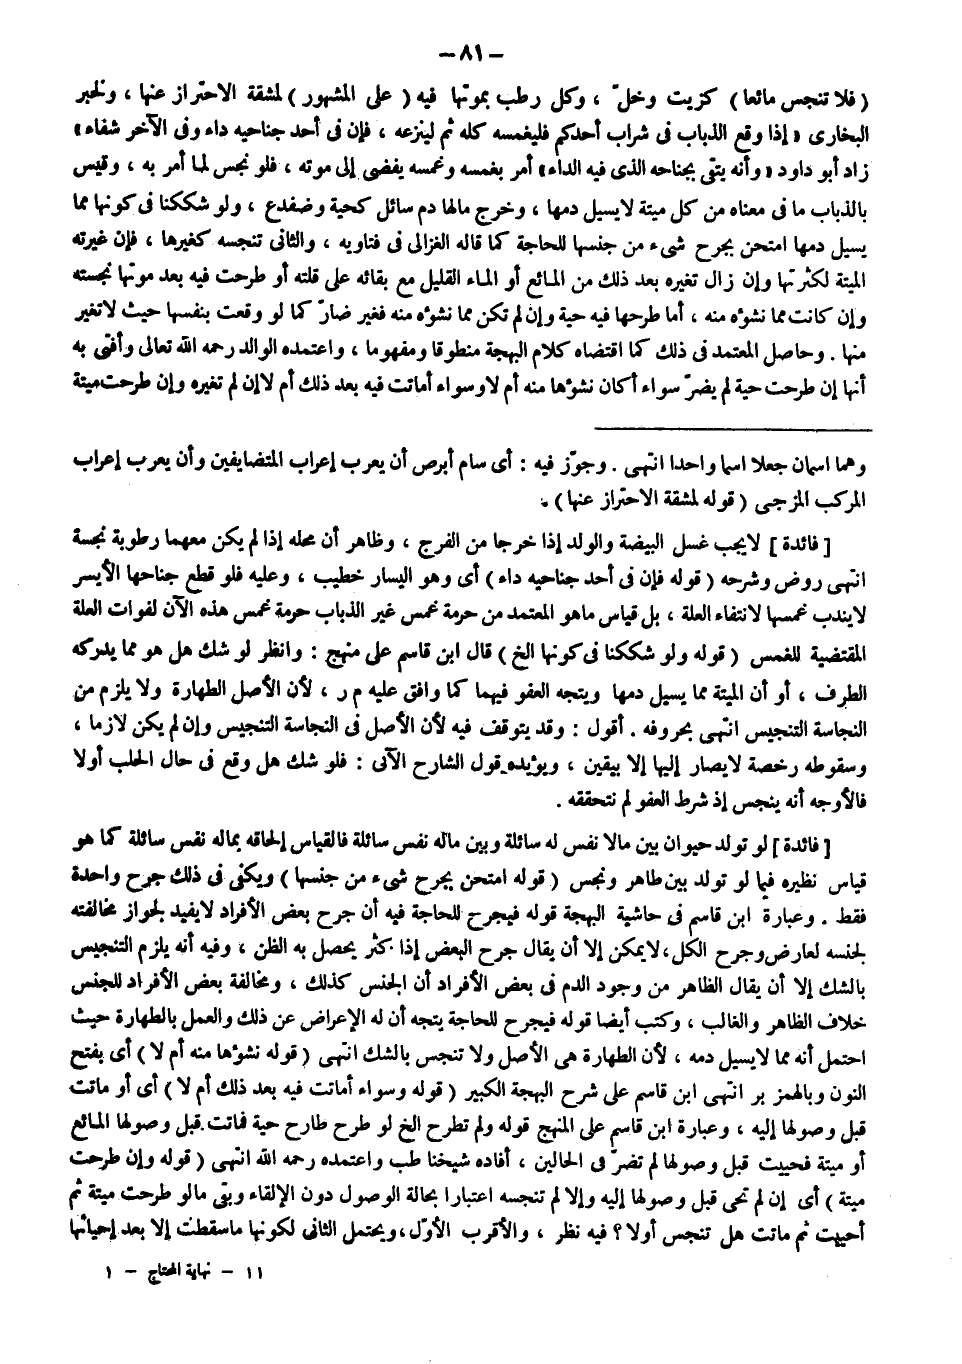 – ٨١ –
( فلا تنجس مائعا ) كزيت وخلّ ، وكل رطب بموتها فيه ( على المشهور ) لمشقة الاحتراز عنها ، ولخبر
البخارى « إذا وقع الذباب فى شراب أحدكم فليغمسه كله ثم لينزعه ، فإن فى أحد جناحيه داء وفى الآخر شفاء »
زاد أبو داود « وأنه يتقى بجناحه الذى فيه الداء » أمر بغمسه وغمسه يفضى إلى موته ، فلو نجس لما أمر به ، وقيس
بالذباب ما فى معناه من كل ميتة لايسيل دمها ، وخرج مالها دم سائل كحية وضفدع ، ولو شككنا فى كونها مما
يسيل دمها امتحن بجرح شىء من جنسها للحاجة كما قاله الغزالى فى فتاويه ، والثانى تنجسه كغيرها ، فإن غيرته
الميتة لكثرتها وإن زال تغيره بعد ذلك من المائع أو الماء القليل مع بقائه على قلته أو طرحت فيه بعد موتها نجسته
وإن كانت مما نشؤه منه ، أما طرحها فيه حية وإن لم تكن مما نشؤه منه فغير ضارّ كما لو وقعت بنفسها حيث لاتغير
منها . وحاصل المعتمد فى ذلك كما اقتضاه كلام البهجة منطوقا ومفهوما ، واعتمده الوالد رحمه الله تعالى وأفتى به
أنها إن طرحت حية لم يضرّ سواء أكان نشؤها منه أم لا وسواء أماتت فيه بعد ذلك أم لا إن لم تغيره وإن طرحت ميتة
وهما اسمان جعلا اسما واحدا انتهى . وجوّز فيه : أى سام أبرص أن يعرب إعراب المتضايفين وأن يعرب إعراب
المركب المزجى ( قوله لمشقة الاحتراز عنها ) .
[ فائدة ] لايجب غسل البيضة والولد إذا خرجا من الفرج ، وظاهر أن محله إذا لم يكن معهما رطوبة نجسة
انتهى روض وشرحه ( قوله فإن فى أحد جناحيه داء ) أى وهو اليسار خطيب ، وعليه فلو قطع جناحها الأيسر
لايندب غمسها لانتفاء العلة ، بل قياس ماهو المعتمد من حرمة غمس غير الذباب حرمة غمس هذه الآن لفوات العلة
المقتضية للغمس ( قوله ولو شككنا فى كونها الخ ) قال ابن قاسم على منهج : وانظر لو شك هل هو مما يدركه
الطرف ، أو أن الميتة مما يسيل دمها ويتجه العفو فيهما كما وافق عليه م ر ، لأن الأصل الطهارة ولا يلزم من
النجاسة التنجيس انتهى بحروفه . أقول : وقد يتوقف فيه لأن الأصل فى النجاسة التنجيس وإن لم يكن لازما ،
وسقوطه رخصة لايصار إليها إلا بيقين ، ويؤيده قول الشارح الآتى : فلو شك هل وقع فى حال الحلب أولا
فالأوجه أنه ينجس إذ شرط العفو لم نتحققه .
[ فائدة ] لو تولد حيوان بين مالا نفس له سائلة وبين ماله نفس سائلة فالقياس إلحاقه بماله نفس سائلة كما هو
قياس نظيره فيما لو تولد بين طاهر ونجس ( قوله امتحن بجرح شىء من جنسها ) ويكفى فى ذلك جرح واحدة
فقط . وعبارة ابن قاسم فى حاشية البهجة قوله فيجرح للحاجة فيه أن جرح بعض الأفراد لايفيد لجواز مخالفته
لجنسه لعارض وجرح الكل ، لايمكن إلا أن يقال جرح البعض إذا كثر يحصل به الظن ، وفيه أنه يلزم التنجيس
بالشك إلا أن يقال الظاهر من وجود الدم فى بعض الأفراد أن الجنس كذلك ، ومخالفة بعض الأفراد للجنس
خلاف الظاهر والغالب ، وكتب أيضا قوله فيجرح للحاجة يتجه أن له الإعراض عن ذلك والعمل بالطهارة حيث
احتمل أنه مما لايسيل دمه ، لأن الطهارة هى الأصل ولا تنجس بالشك انتهى ( قوله نشؤها منه أم لا ) أى بفتح
النون وبالهمز بر انتهى ابن قاسم على شرح البهجة الكبير ( قوله وسواء أماتت فيه بعد ذلك أم لا ) أى أو ماتت
قبل وصولها إليه ، وعبارة ابن قاسم على المنهج قوله ولم تطرح الخ لو طرح طارح حية فماتت قبل وصولها المائع
أو ميتة فحييت قبل وصولها لم تضرّ فى الحالين ، أفاده شيخنا طب واعتمده رحمه الله انتهى ( قوله وإن طرحت
ميتة ) أى إن لم تحى قبل وصولها إليه وإلا لم تنجسه اعتبارا بحالة الوصول دون الإلقاء وبقى مالو طرحت ميتة ثم
أحييت ثم ماتت هل تنجس أولا ؟ فيه نظر ، والأقرب الأوّل ، ويحتمل الثانى لكونها ماسقطت إلا بعد إحيائها
١١ – نهاية المحتاج – ١